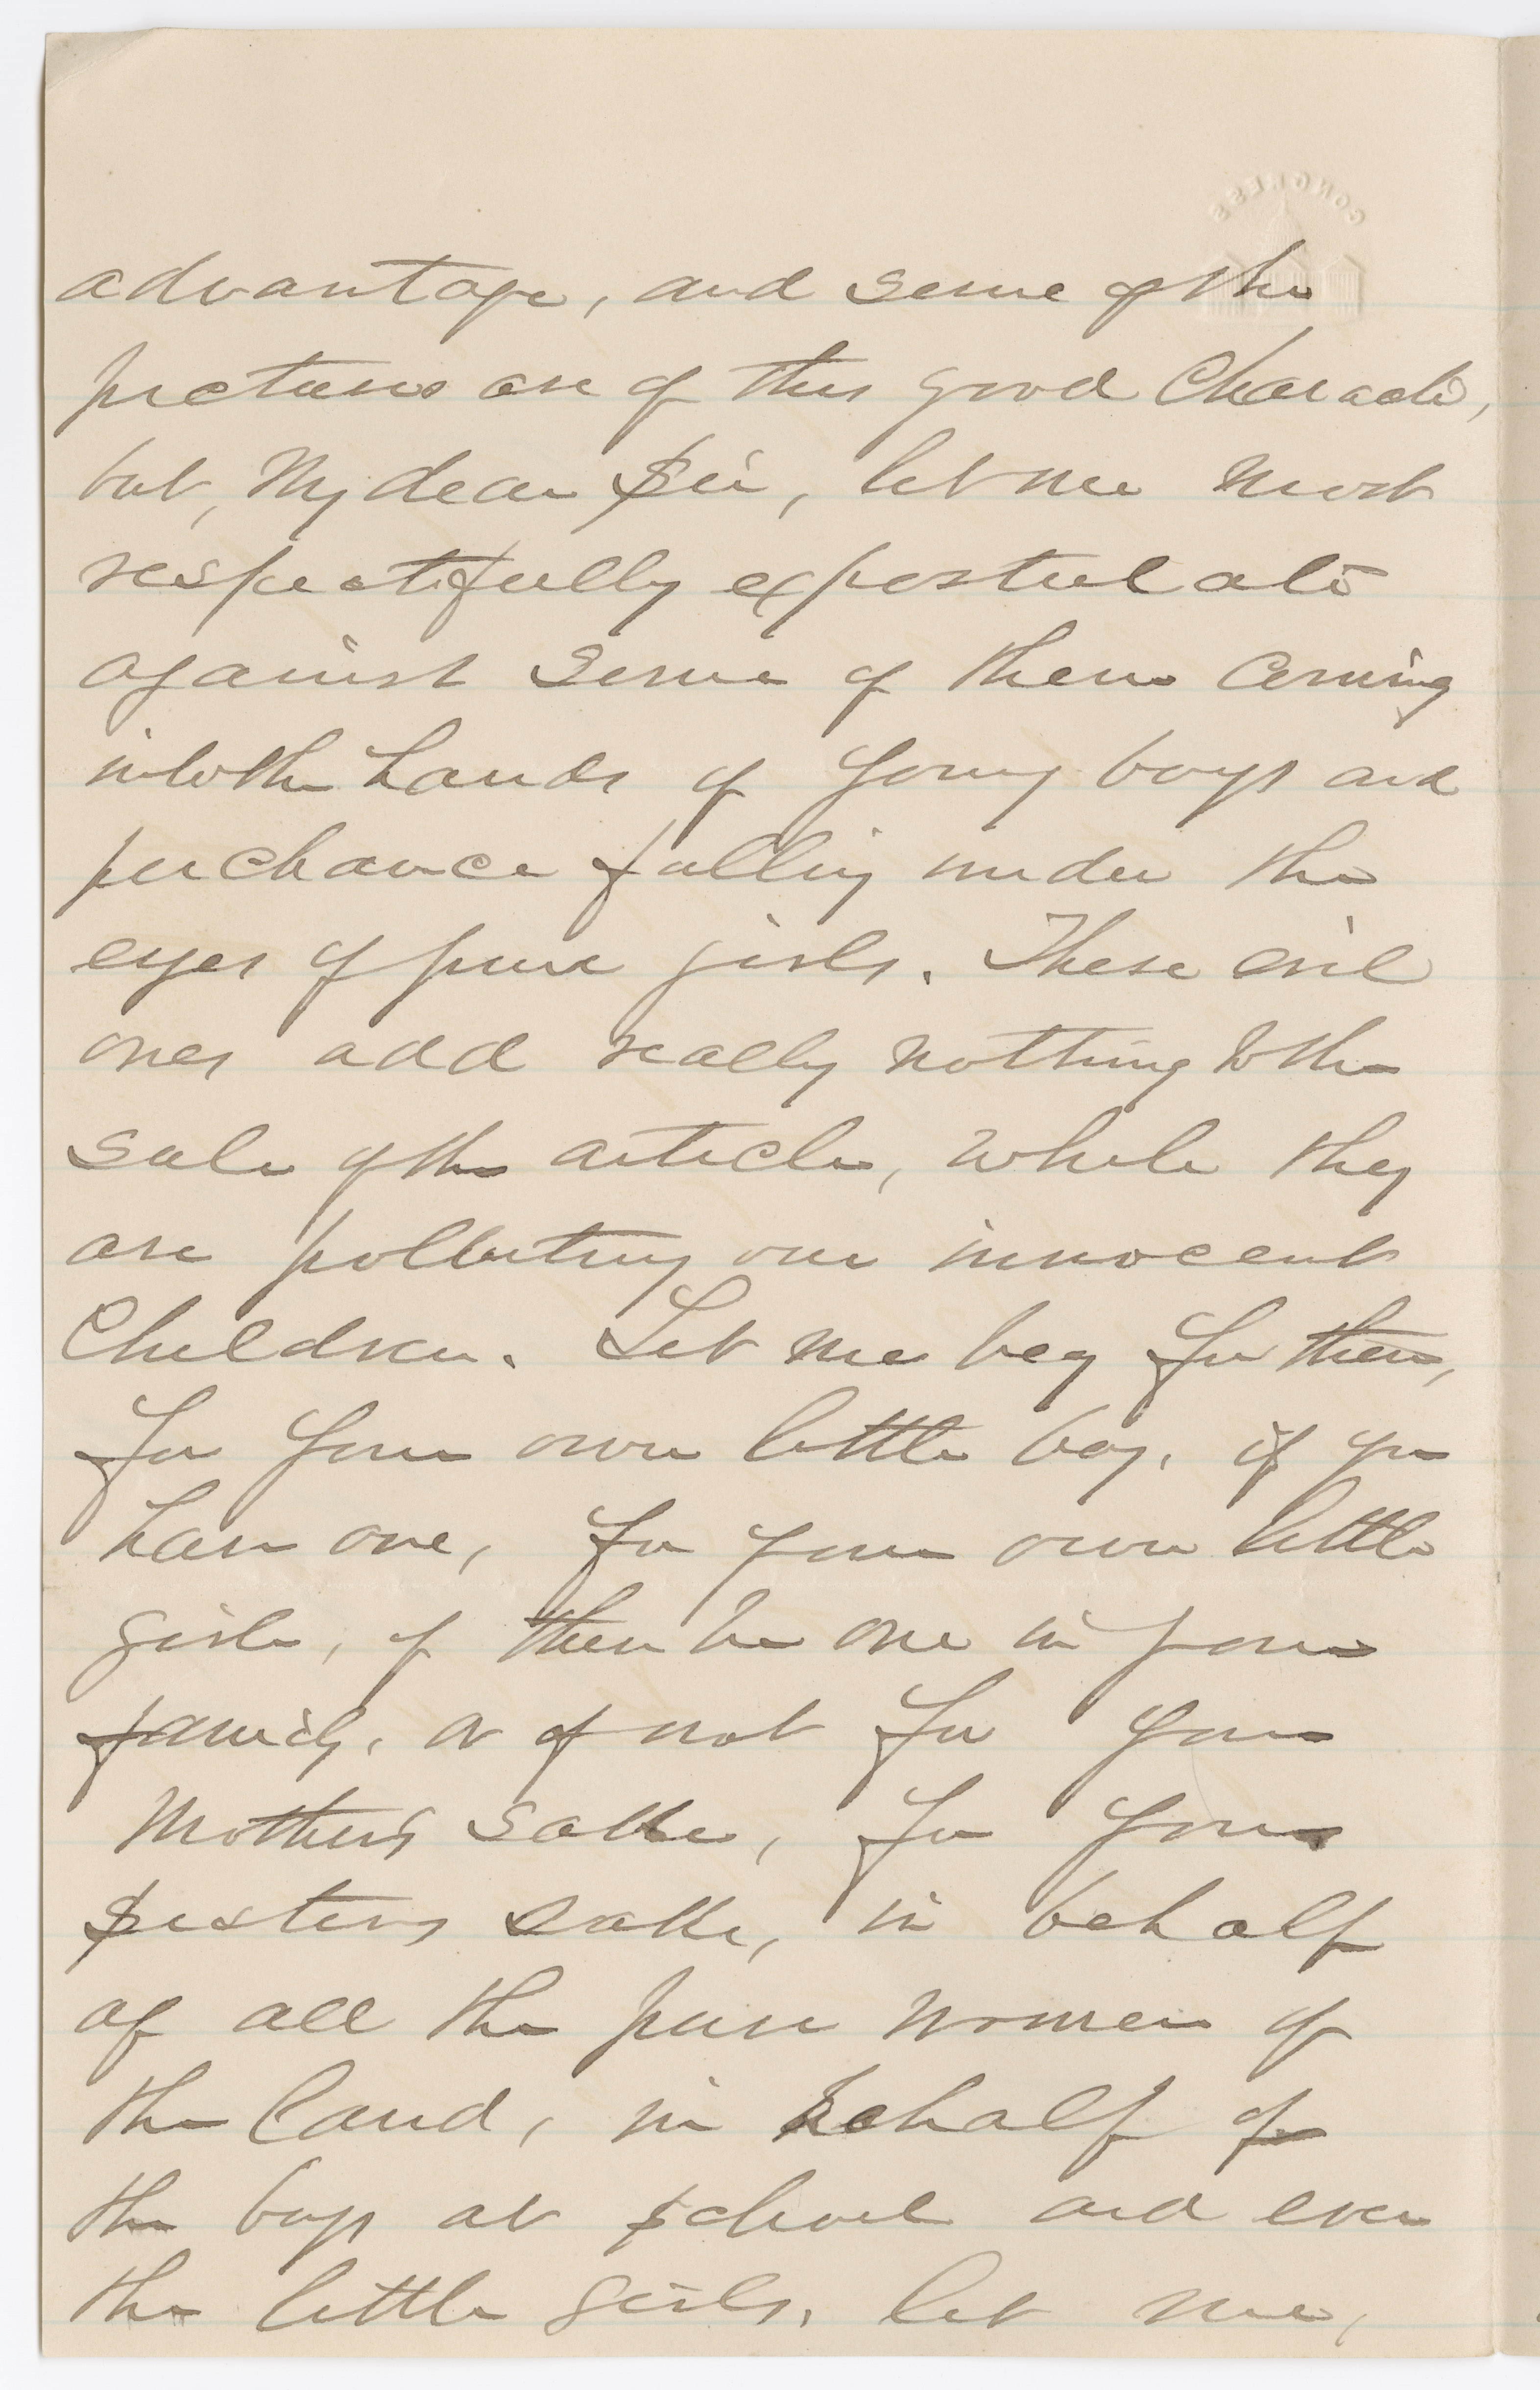 CONGRESS
advantage, and some of the
pictures are of this good character,
but, My dear Sir, let me most
respectifully expostulate
against some of them coming
into the hands of young boys and
perchance falling under the
eyes of pure girls. These evil
ones add really nothing to the
sale of the article, while they
are polluting our innocent
Children. Let me beg for them,
for your own little boy, if you
have one, for your own little
girls, if there be one in your
family, or if not for your
Mother's sake, for your
Sisters sake, in behalf
of all the pure women of
the land, in behalf of
the boys at school and even
the little girls, let me,